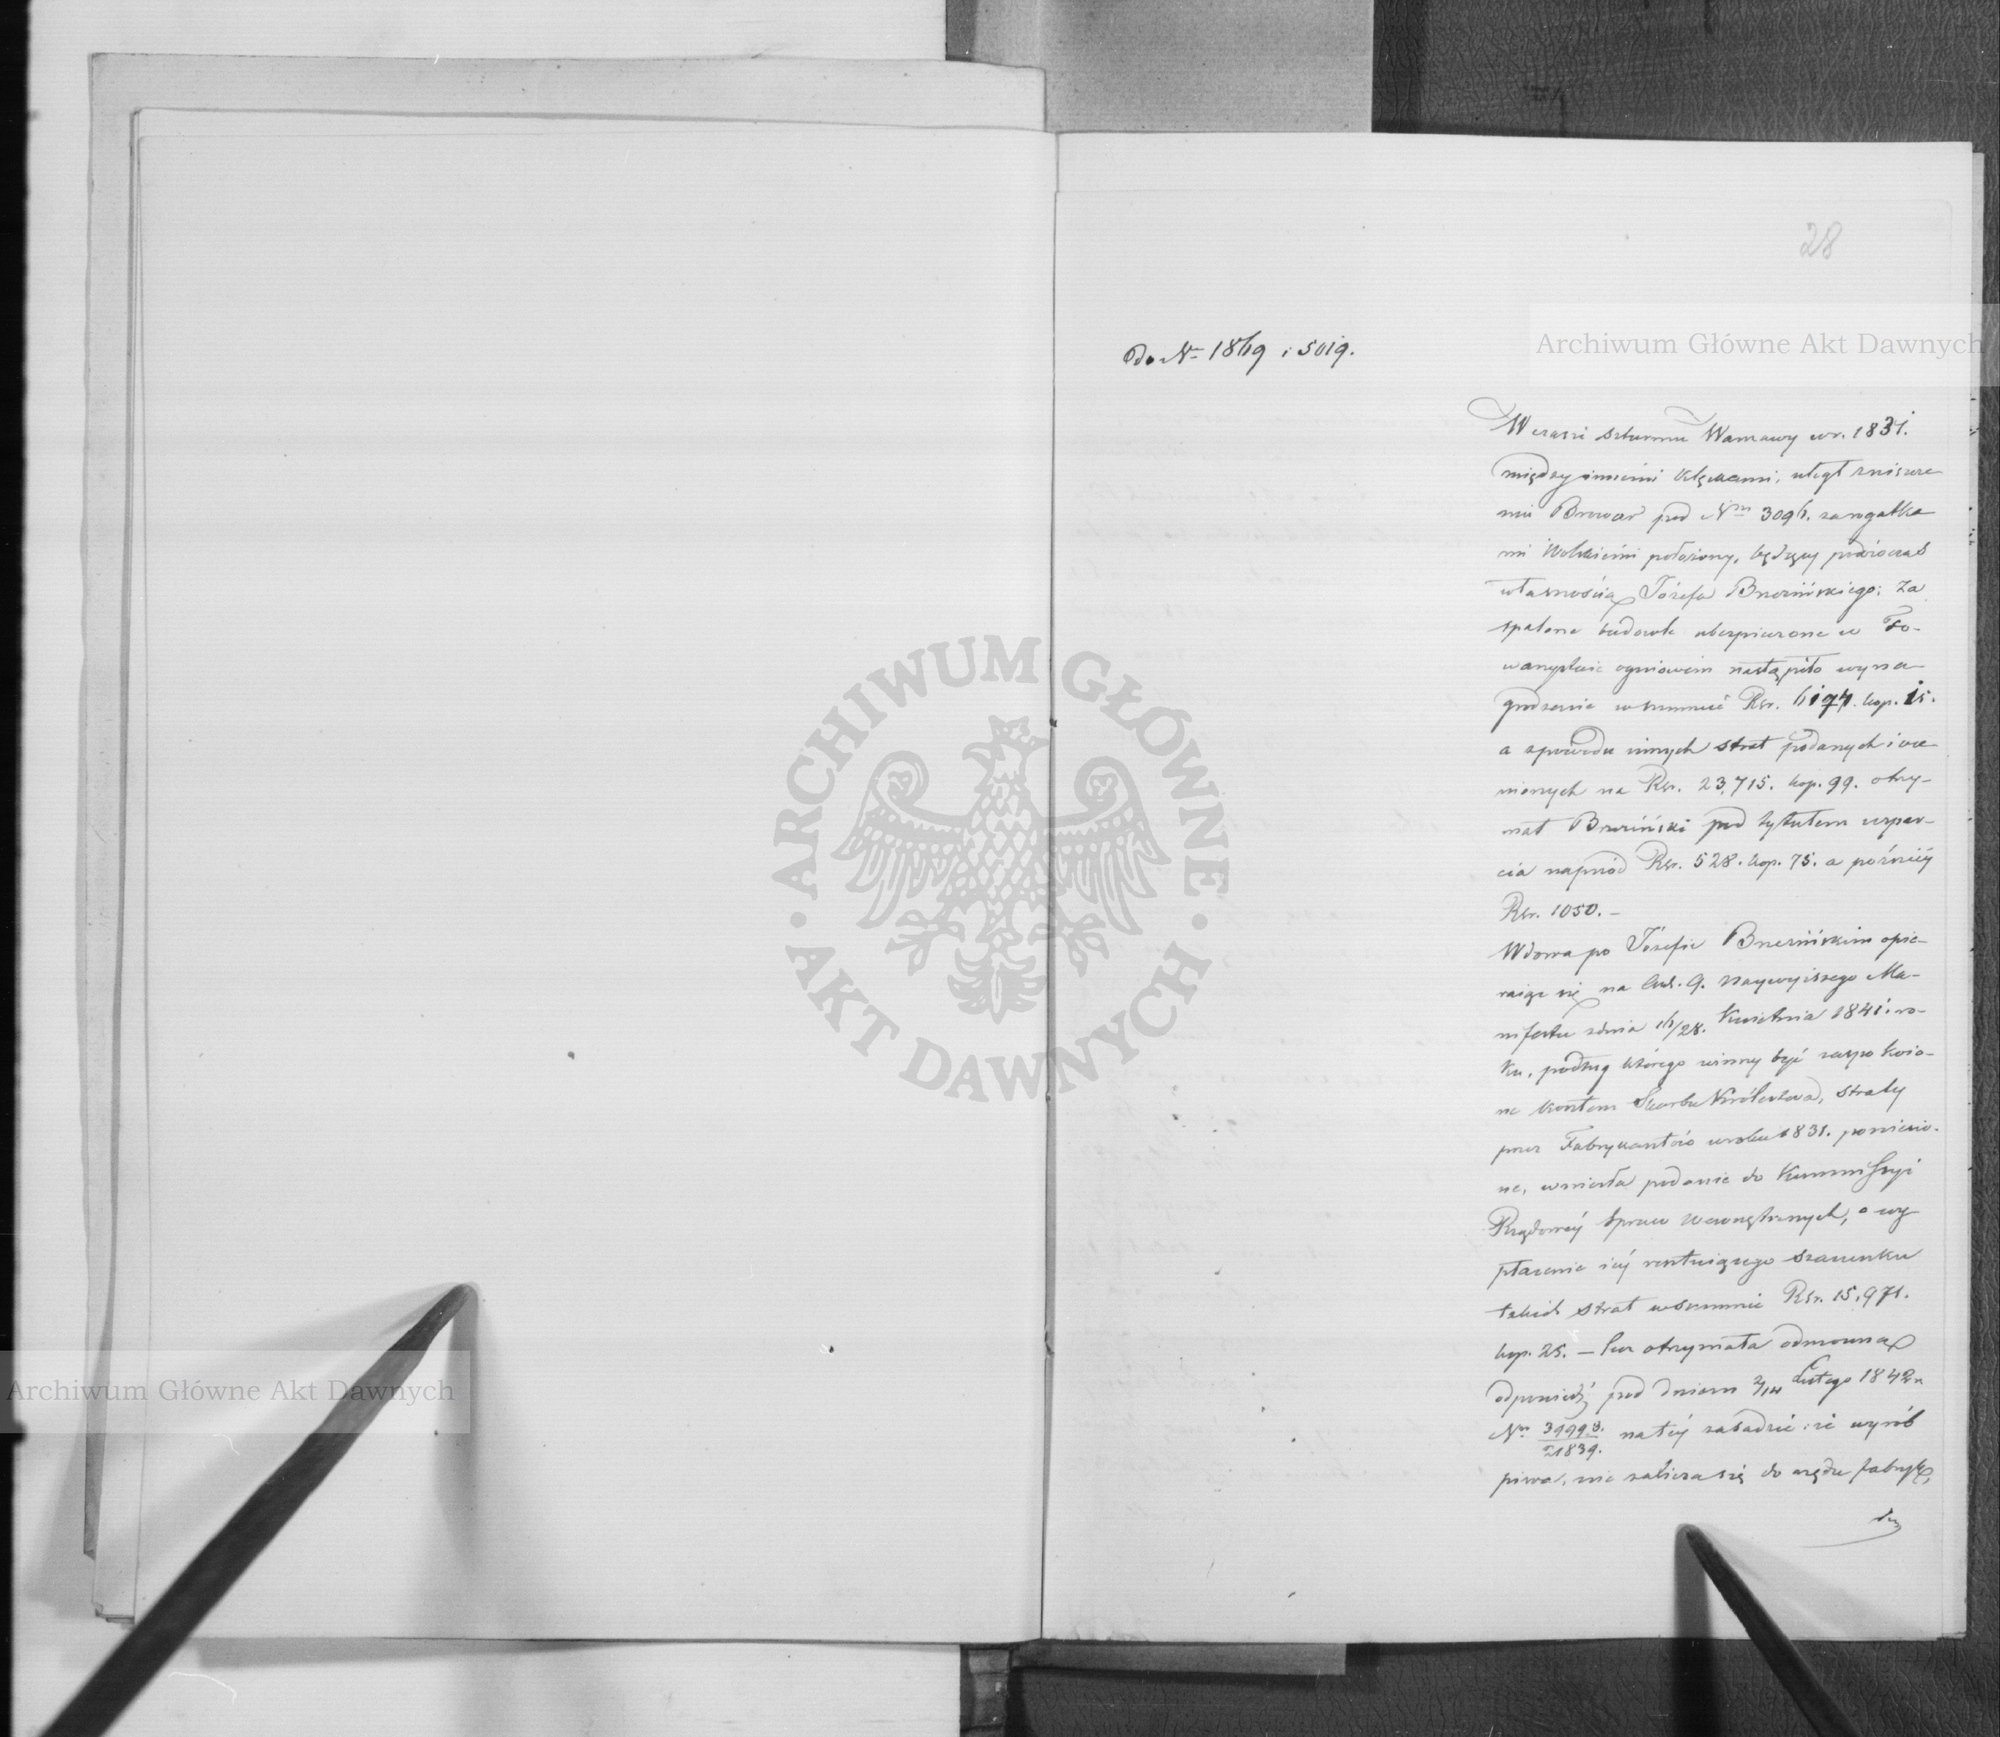 28
Do Nr 1869 i 5019.
W czasie szturmu Warszawy w r. 1831.
między innemi klęskami, uległ zniszcze-
niu Browar pod Nrm 3096. za rogatka-
mi Wolskiemi położony, będący podówczas
własnością Józefa Brzezińskiego; Za
spalone budowle ubezpieczone w To-
warzystwie ogniowem nastąpiło wyna-
grodzenie w summie Rsr. 6174. kop. 15.
a z powodu innych strat podanych i oce-
nionych na Rsr. 23,715. kop. 99. otrzy-
mał Brzeziński pod tytułem wspar-
cia naprzód Rsr. 528. kop. 75. a późniéy
Rsr. 1050. –
Wdowa po Józefie Brzezińskim opie-
raiąc się na Art. 9. Naywyższego Ma-
nifestu z dnia 16/28. Kwietnia 1841. ro-
ku, podług którego winny być zaspokoio-
ne kosztem Skarbu Królestwa, straty
przez Fabrykantów w roku 1831. poniesio-
ne, wniosła podanie do Kommissyi
Rządowéy Spraw Wewnętrznych, o wy-
płacenie iéy resztuiącego szacunku
takich strat w summie Rsr. 15,971.
kop. 25. – lecz otrzymała odmowną
odpowiedź pod dniem 2/14 Lutego 1842 r.
Nrm 39998./21839. na téy zasadzie: że wyrób
piwa, nie zalicza się do rzędu fabryk,
Archiwum Główne Akt Dawnych
Archiwum Główne Akt Dawnych
ARCHIWUM GŁÓWNE AKT DAWNYCH